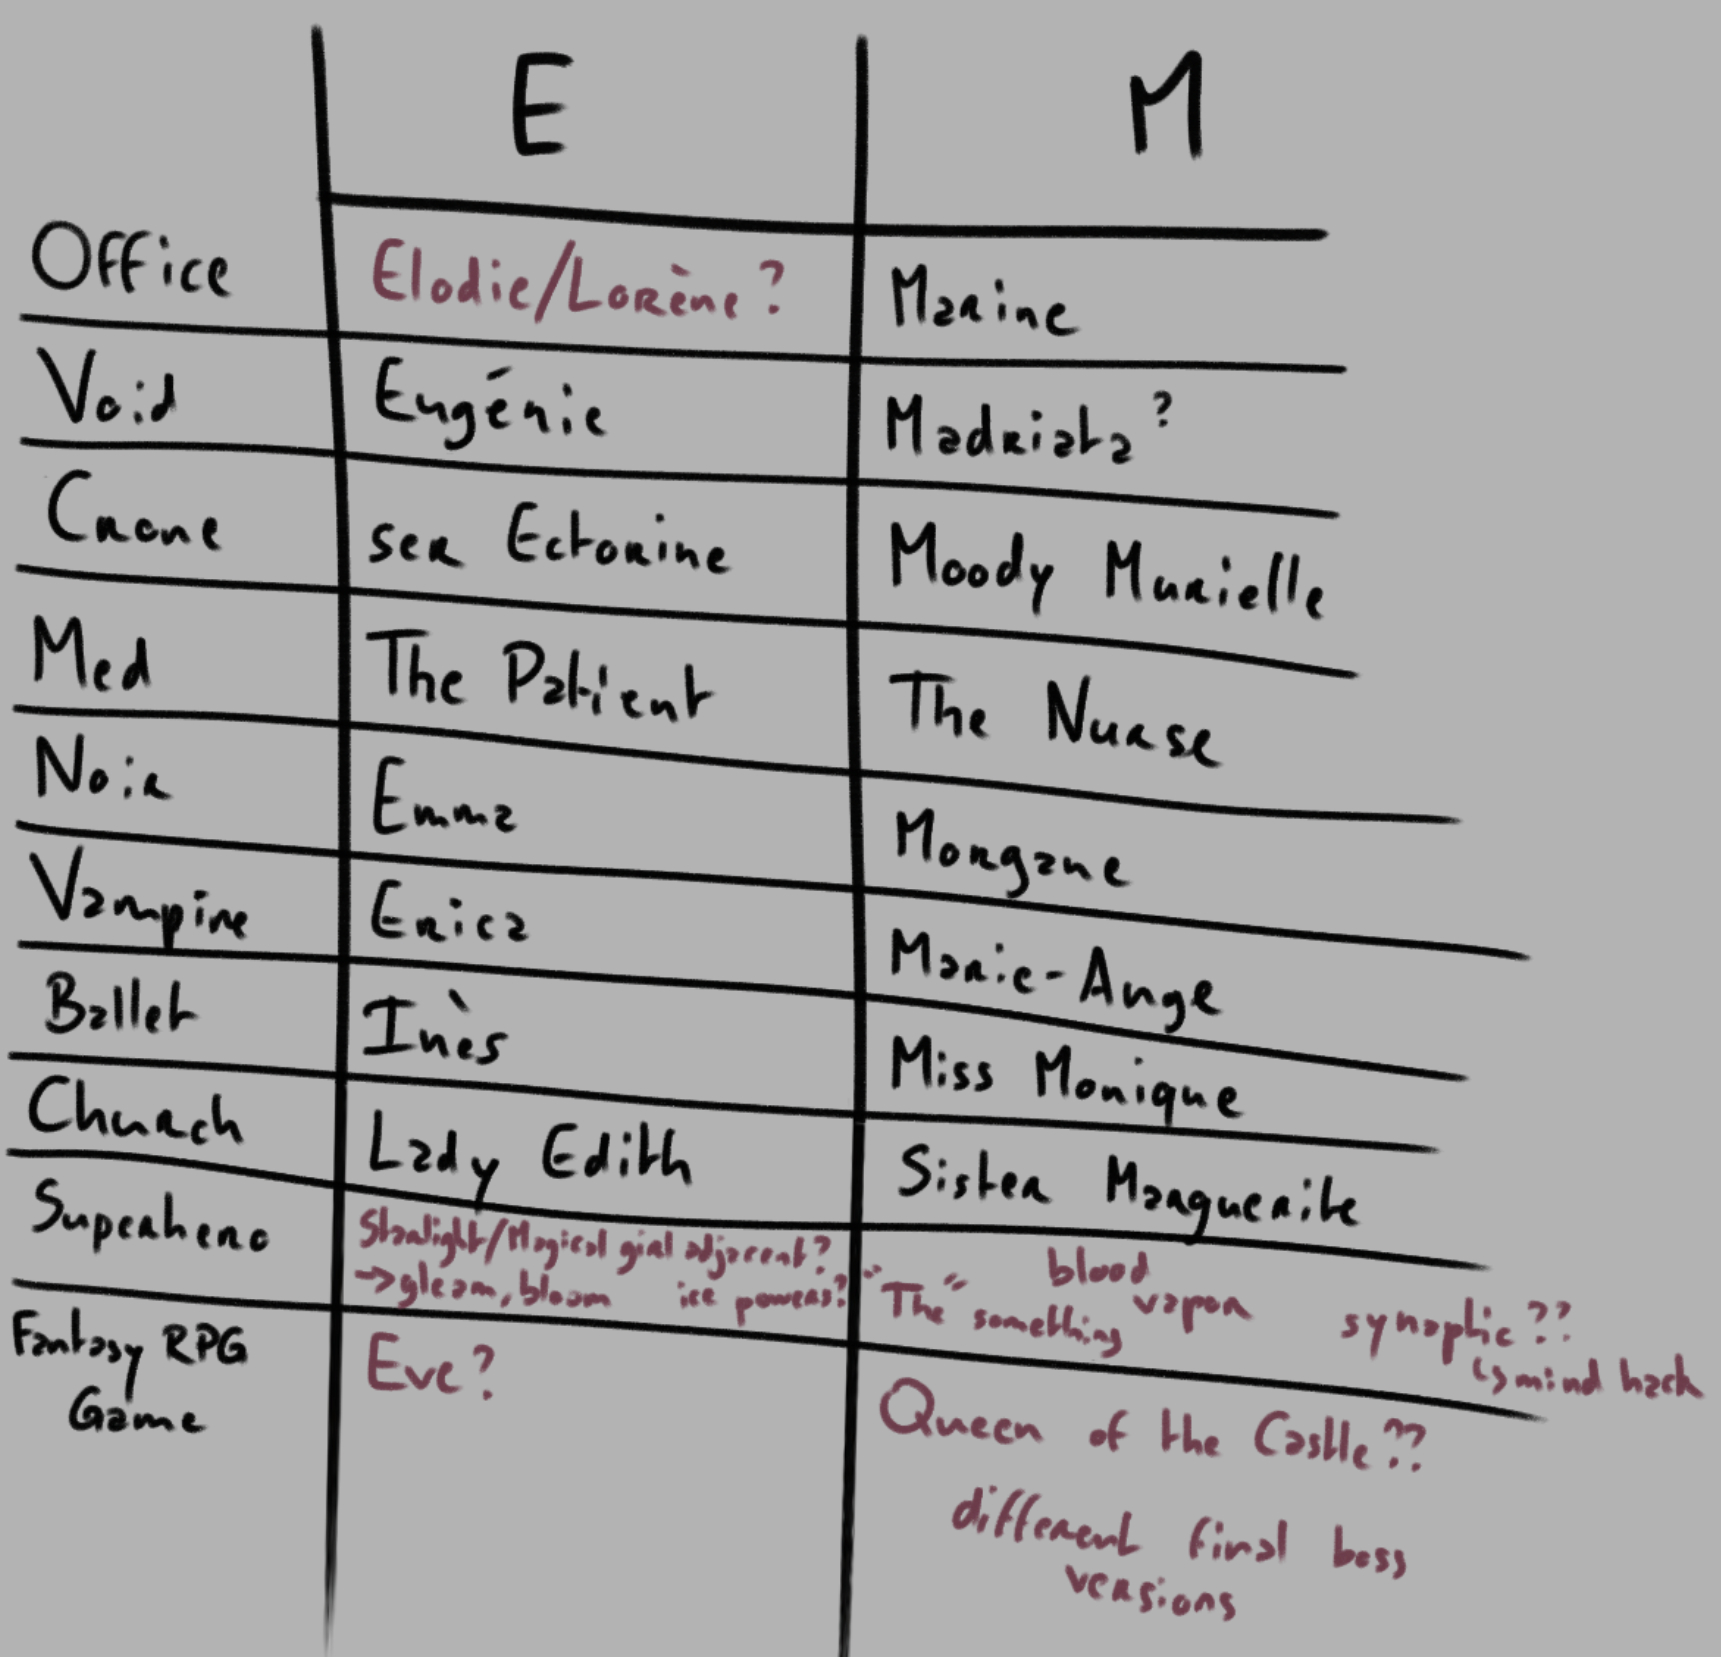 E M
Office Elodie/Lorène? Marine
Void Eugénie Madriata?
Crone ser Ectorine Moody Murielle
Med The Patient The Nurse
Noir Emma Morgane
Vampire Erica Marie-Ange
Ballet Inès Miss Monique
Church Lady Edith Sister Marguerite
Superhero Starlight/Magical girl adjacent? blood
→gleam, bloom ice powers? "The" something vapor synaptic??
↳ mind hack
Fantasy RPG Eve? Queen of the Castle??
Game
different final boss
versions